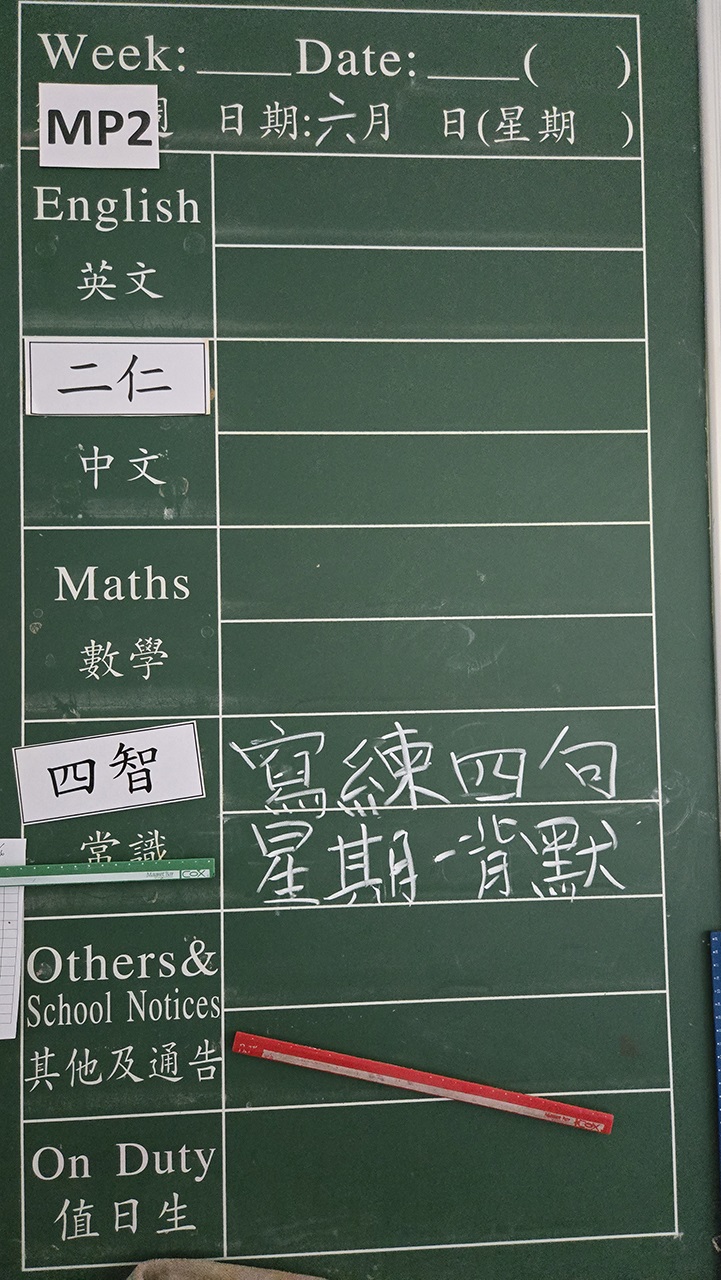 Week: ____ Date: ____ ( )
MP2 週 日期:六月 日(星期 )
English
英文
二仁
中文
Maths
數學
四智 寫練四句
常識 星期一背默
COX
Others&
School Notices
其他及通告
COX
On Duty
值日生